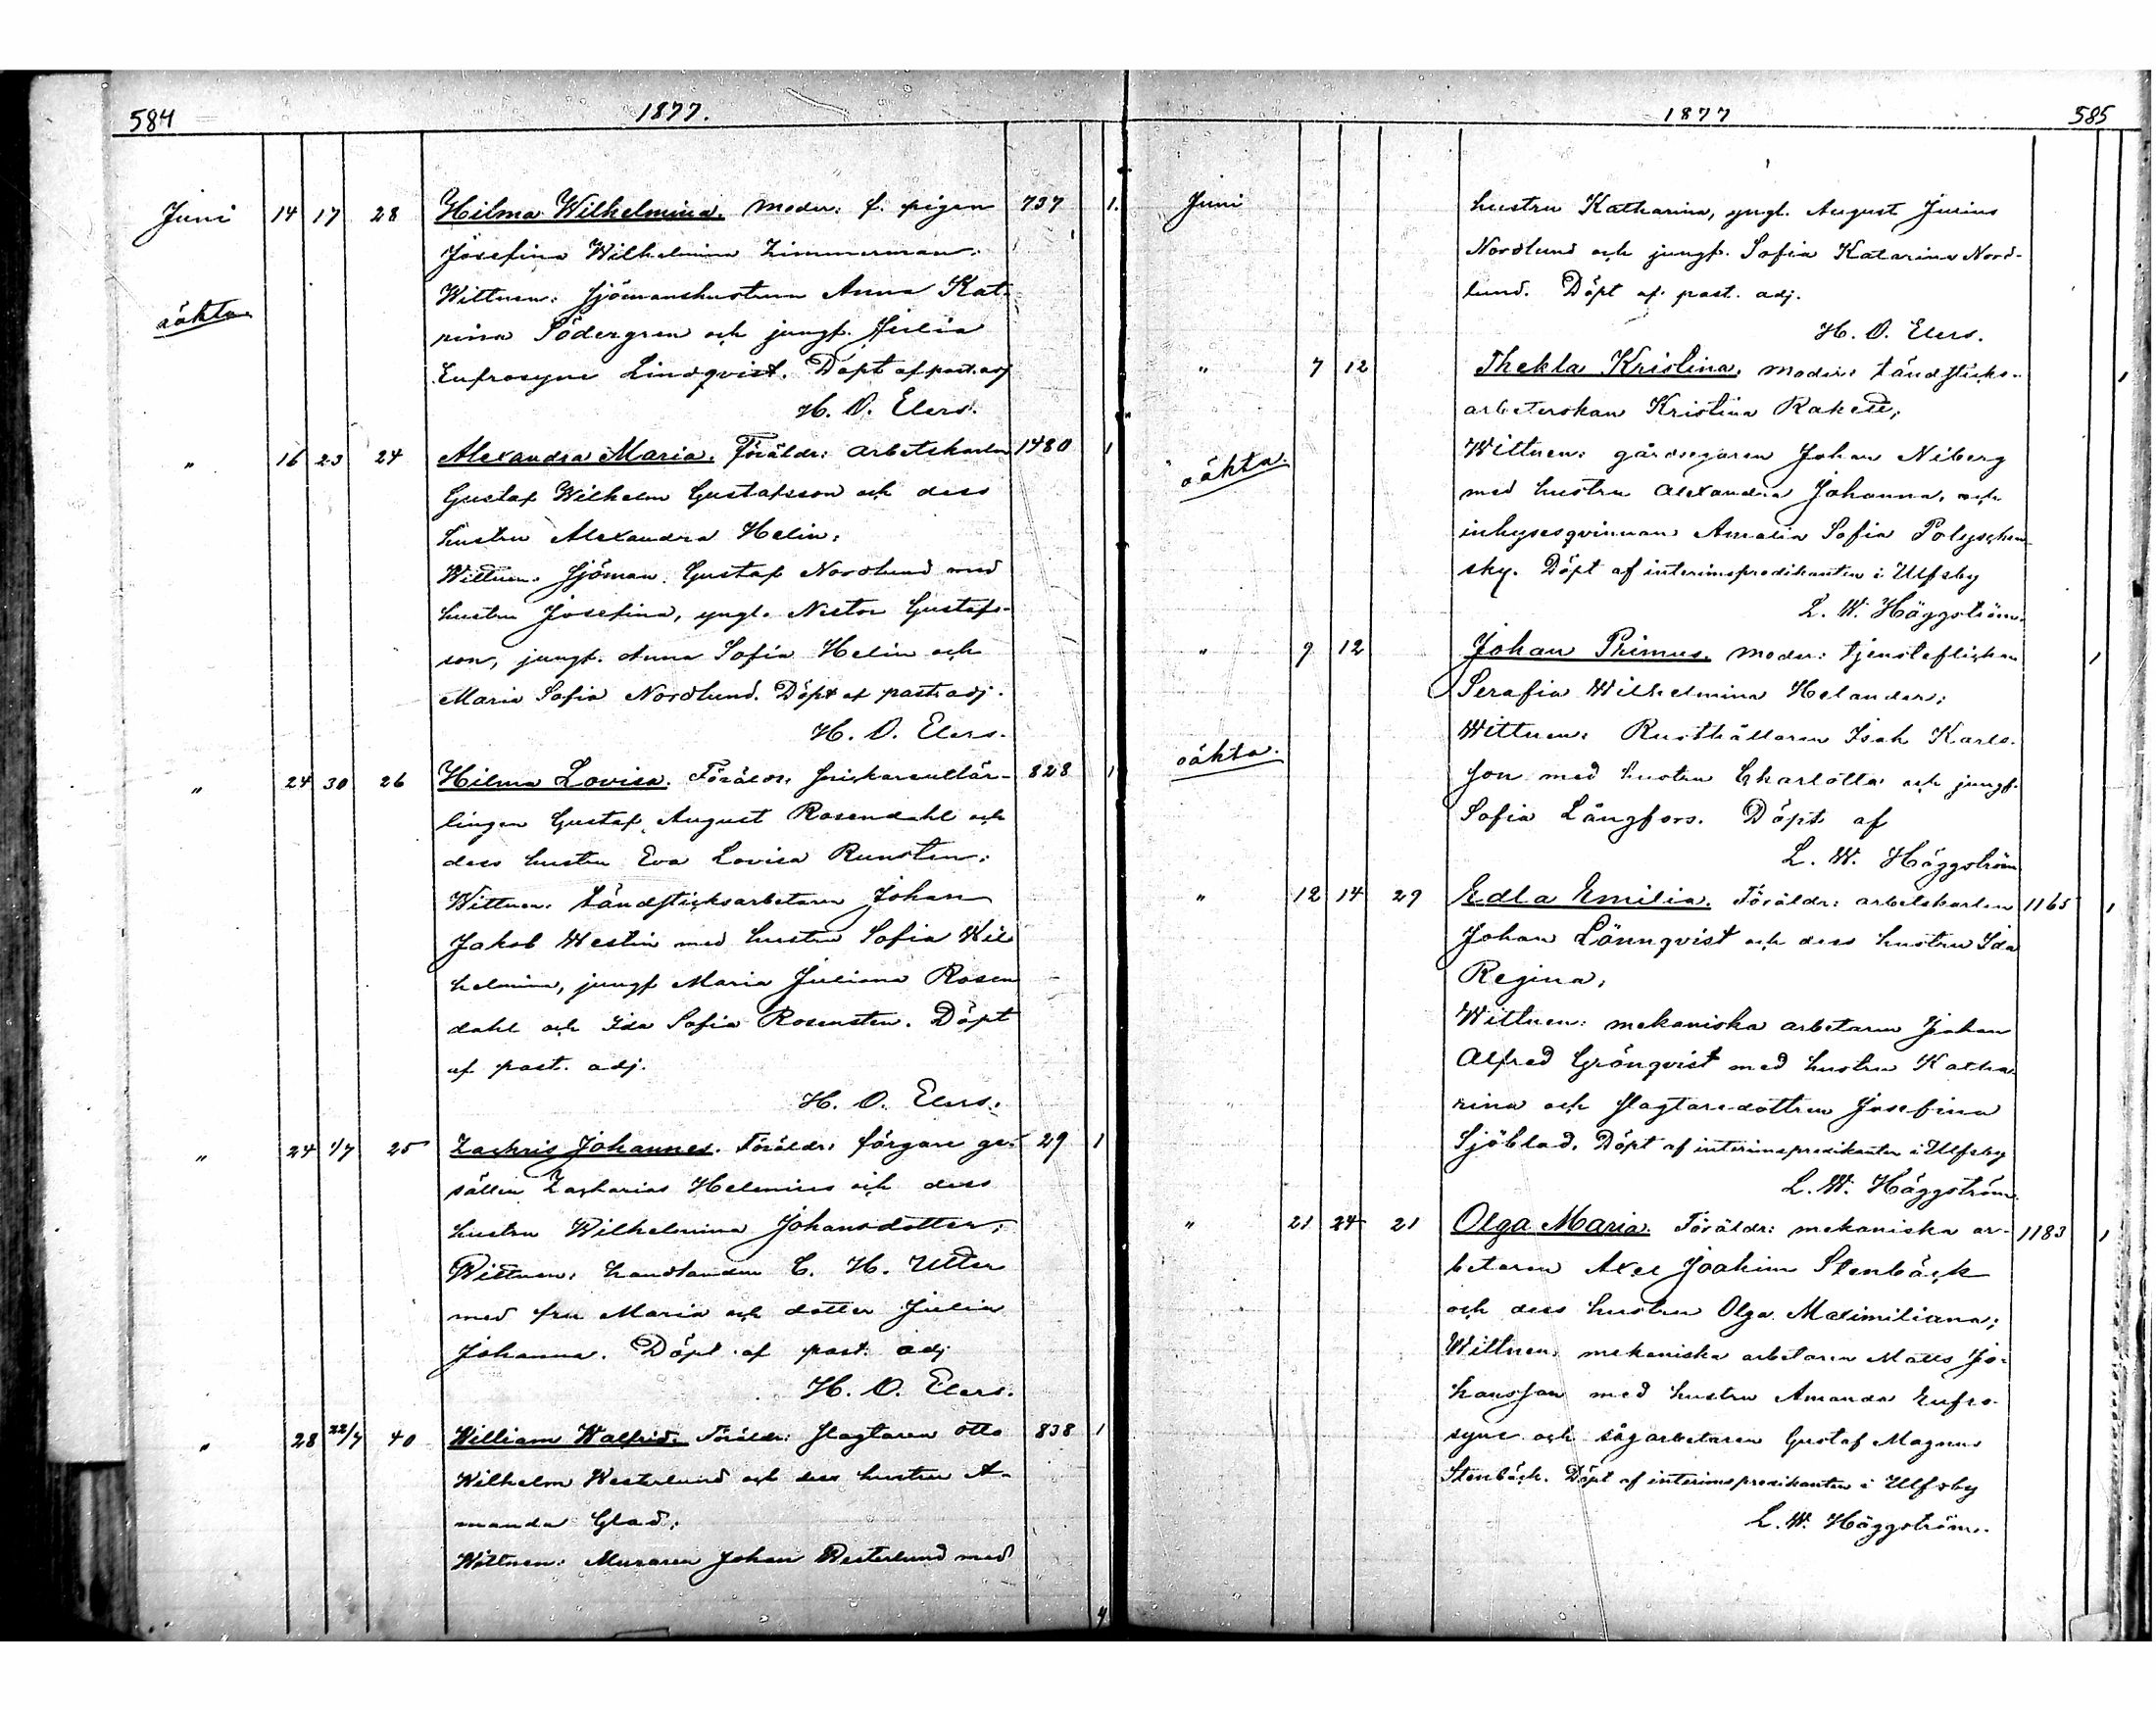 584 1877.
Juni 14 17 28 Hilma Wilhelmina. Moder: f. pigan 737 1.
Josefina Wilhelmina Zimmerman;
Wittnen: Sjömanshustrun Anna Kat-
oäkta
rina Södergren och jungf. Julia
Eufrosyne Lindqvist. Döpt af past. adj
H. O. Elers.
" 16 23 24 Alexandra Maria. Föräldr: arbetskarlen 1480 1
Gustaf Wilhelm Gustafsson och dess
hustru Alexandra Helin;
Wittnen: Sjöman Gustaf Nordlund med
hustru Josefina, yngl. Nestor Gustafs-
son, jungf. Anna Sofia Helin och
Maria Sofia Nordlund. Döpt af past. adj.
H. O. Elers.
" 24 30 26 Hilma Lovisa. Föräldr: 828 1
lingen Gustaf August Rosendahl och
dess hustru Eva Lovisa Runsten;
Wittnen: tändsticksarbetaren Johan
Jakob Westin med hustru Sofia Wil
helmina, jungf Maria Juliana Rosen
dahl och Ida Sofia Rosensten. Döpt
af past. adj.
H. O. Elers.
" 24 1/7 25 Zachris Johannes. Föräldr: färgare ge- 29 1
sällen Zacharias Helenius och dess
hustru Wilhelmina Johansdotter;
Wittnen: handlanden C. H. Utter
med fru Maria och dotter Julia
Johanna. Döpt af past. adj
H. O. Elers.
" 28 22/7 40 William Walfrid. Föräldr: slagtaren Otto 838 1
Wilhelm Westerlund och dess hustru A-
manda Glad;
Wittnen: Muraren Johan Westerlund med
1877 585
Juni hustru Katharina, yngl. August Julius
Nordlund och jungf. Sofia Katarina Nord-
lund. Döpt af past. adj.
H. O. Elers.
" 7 12 Thekla Kristina. Moder: tändsticks- 1
arbeterskan Kristina Rakell;
oäkta. Wittnen: gårdsegaren Johan Niberg
med hustru Alexandra Johanna, och
inhysesqvinnan Amalia Sofia
sky. Döpt af interimspredikanten i Ulfsby
L. W. Häggström.
" 9 12 Johan Primus. Moder: tjensteflickan 1
Serafia Wilhelmina Helander;
oäkta. Wittnen: Rusthållaren Isak Karls-
son med hustru Charlotta och jungf.
Sofia Långfors. Döpt af
L. W. Häggström
" 12 14 29 Edla Emilia. Föräldr: arbetskarlen 1165 1
Johan Lönnqvist och dess hustru Ida
Regina;
Wittnen: mekaniska arbetaren Johan
Alfred Grönqvist med hustru Katha-
rina och slagtaredottren Josefina
Sjöblad. Döpt af interimspredikanten i Ulfsby
L. W. Häggström.
" 21 24 21 Olga Maria. Föräldr: mekaniska ar- 1183 1
betaren Axel Joakim Stenbäck
och dess hustru Olga Maximiliana;
Wittnen: mekaniska arbetaren Matts Jo-
hansson med hustru Amanda Eufro-
syne och sågarbetaren Gustaf Magnus
Stenbäck. Döpt af interimspredikanten i Ulfsby
L. W. Häggström.